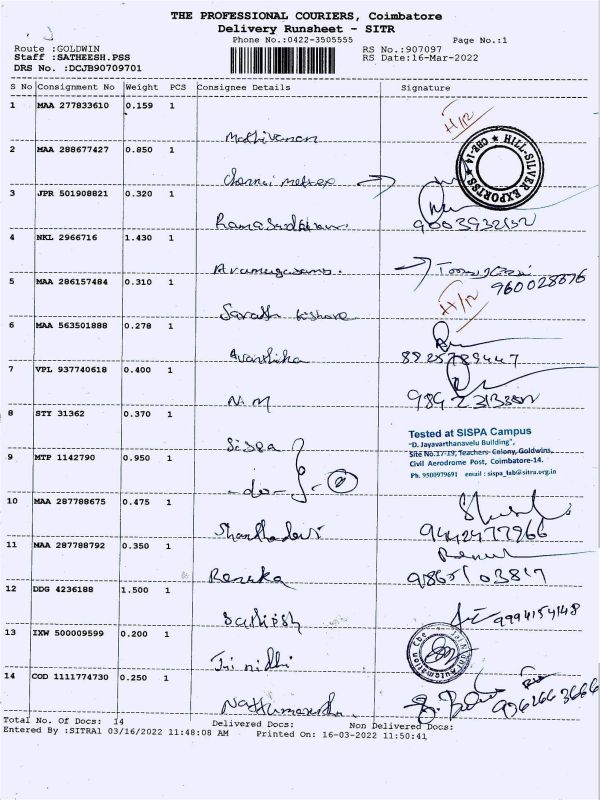 THE PROFESSIONAL COURIERS, Coimbatore
Delivery Runsheet - SITR
Phone No.:0422-3505555 Page No.:1
Route :GOLDWIN RS No.:907097
Staff :SATHEESH.PSS RS Date:16-Mar-2022
DRS No. :DCJB90709701
S No Consignment No Weight PCS Consignee Details Signature
1 MAA 277833610 0.159 1
Mathivanan H/R
2 MAA 288677427 0.850 1
Chennai HILL-SILVER EXPORTES ★ CBE-14 ★
3 JPR 501908821 0.320 1
4 NKL 2966716 1.430 1
Arumugasamy.
5 MAA 286157484 0.310 1
Sarath Kishore H/R
6 MAA 563501888 0.278 1
Avanthika 8825789447
7 VPL 937740618 0.400 1
N.M
8 STY 31362 0.370 1
Sispa
Tested at SISPA Campus
"D. Jayavarthanavelu Building",
Site No.17-19, Teachers Colony, Goldwins,
Civil Aerodrome Post, Coimbatore-14.
Ph. 9500979691 email : sispa_lab@sitra.org.in
9 MTP 1142790 0.950 1
-do-
10 MAA 287788675 0.475 1
Shanthadevi 9442477966
11 MAA 287788792 0.350 1
Renuka
12 DDG 4236188 1.500 1
Sathish 9994154148
13 IXW 500009599 0.200 1
Automation
14 COD 1111774730 0.250 1
Total No. Of Docs: 14 Delivered Docs: Non Delivered Docs:
Entered By :SITRA1 03/16/2022 11:48:08 AM Printed On: 16-03-2022 11:50:41